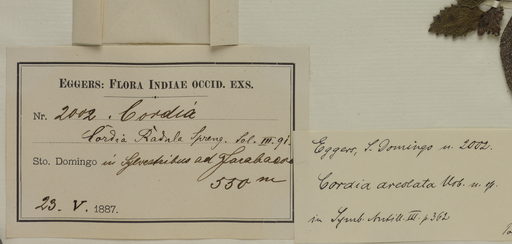 EGGERS: FLORA INDIAE OCCID. EXS.
Nr. 2002. Cordia
Cordia Radula Spreng. Sol. III. 91.
Sto. Domingo in Sylvestribus ad Jarabacoa
550 m
23. V. 1887.
Eggers, S. Domingo n. 2002.
Cordia areolata Urb. n. sp.
in Symb. Antill. VII. p. 362